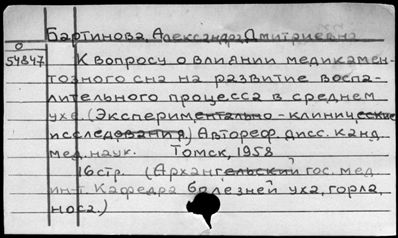 Бартинова, Александра Дмитриевна
О
54847
К вопросу о влиянии медикамен-
тозного сна на развитие воспа-
лительного процесса в среднем
ухе. (Экспериментально-клинические
исследования.) Автореф. дисс. канд.
мед. наук. Томск, 1958
16 стр. (Архангельский гос. мед.
ин-т. Кафедра болезней уха, горла,
носа.)